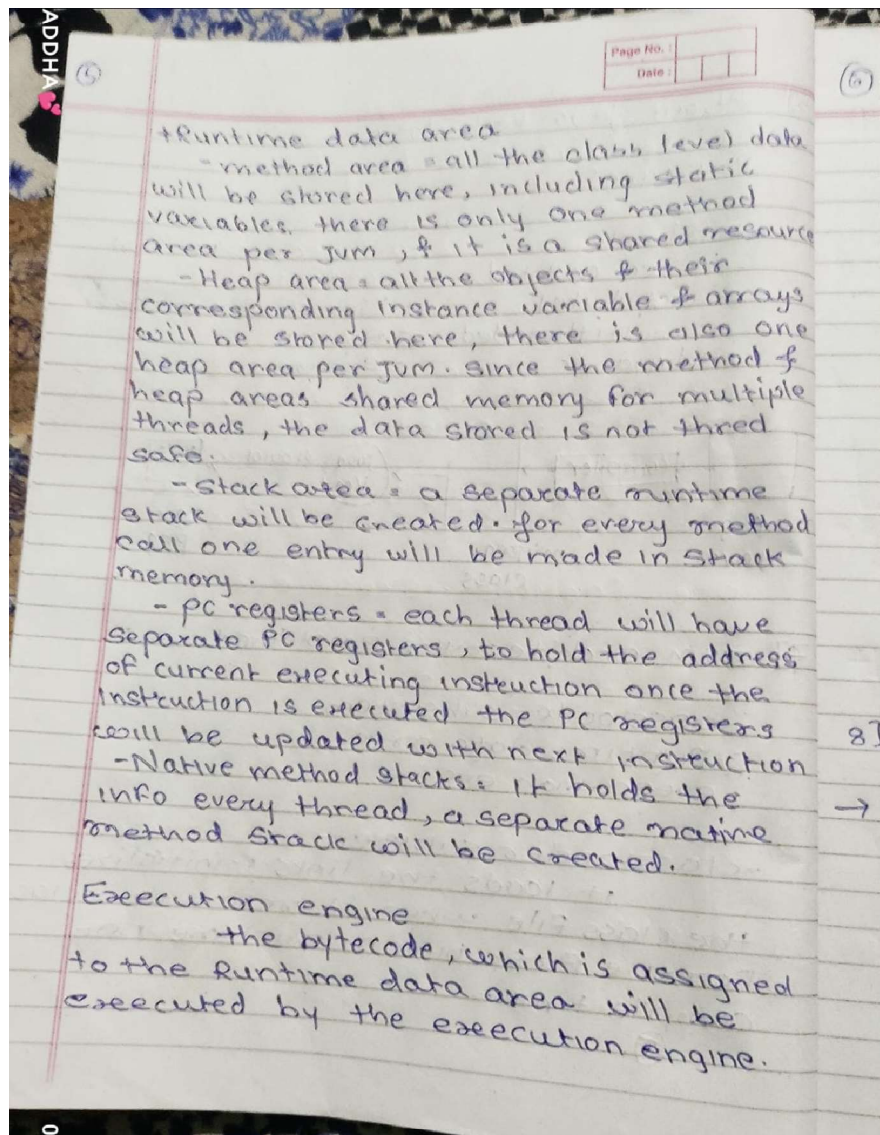 ADDHA💕
5
Page No. :
Date :
6
+Runtime data area
- method area = all the class level data
will be stored here, including static
variables. there is only one method
area per JVM, & it is a shared resource
- Heap area = all the objects & their
corresponding instance variable & arrays
will be stored here, there is also one
heap area per JVM. since the method &
heap areas shared memory for multiple
threads, the data stored is not thred
safe.
- Stack area = a separate runtime
stack will be created. for every method
call one entry will be made in stack
memory.
- PC registers = each thread will have
separate PC registers, to hold the address
of current executing instruction once the
instruction is executed the PC registers
will be updated with next instruction
- Native method stacks = It holds the
info every thread, a separate native
method stack will be created.
Execution engine
the bytecode, which is assigned
to the Runtime data area will be
executed by the execution engine.
8]
→
0